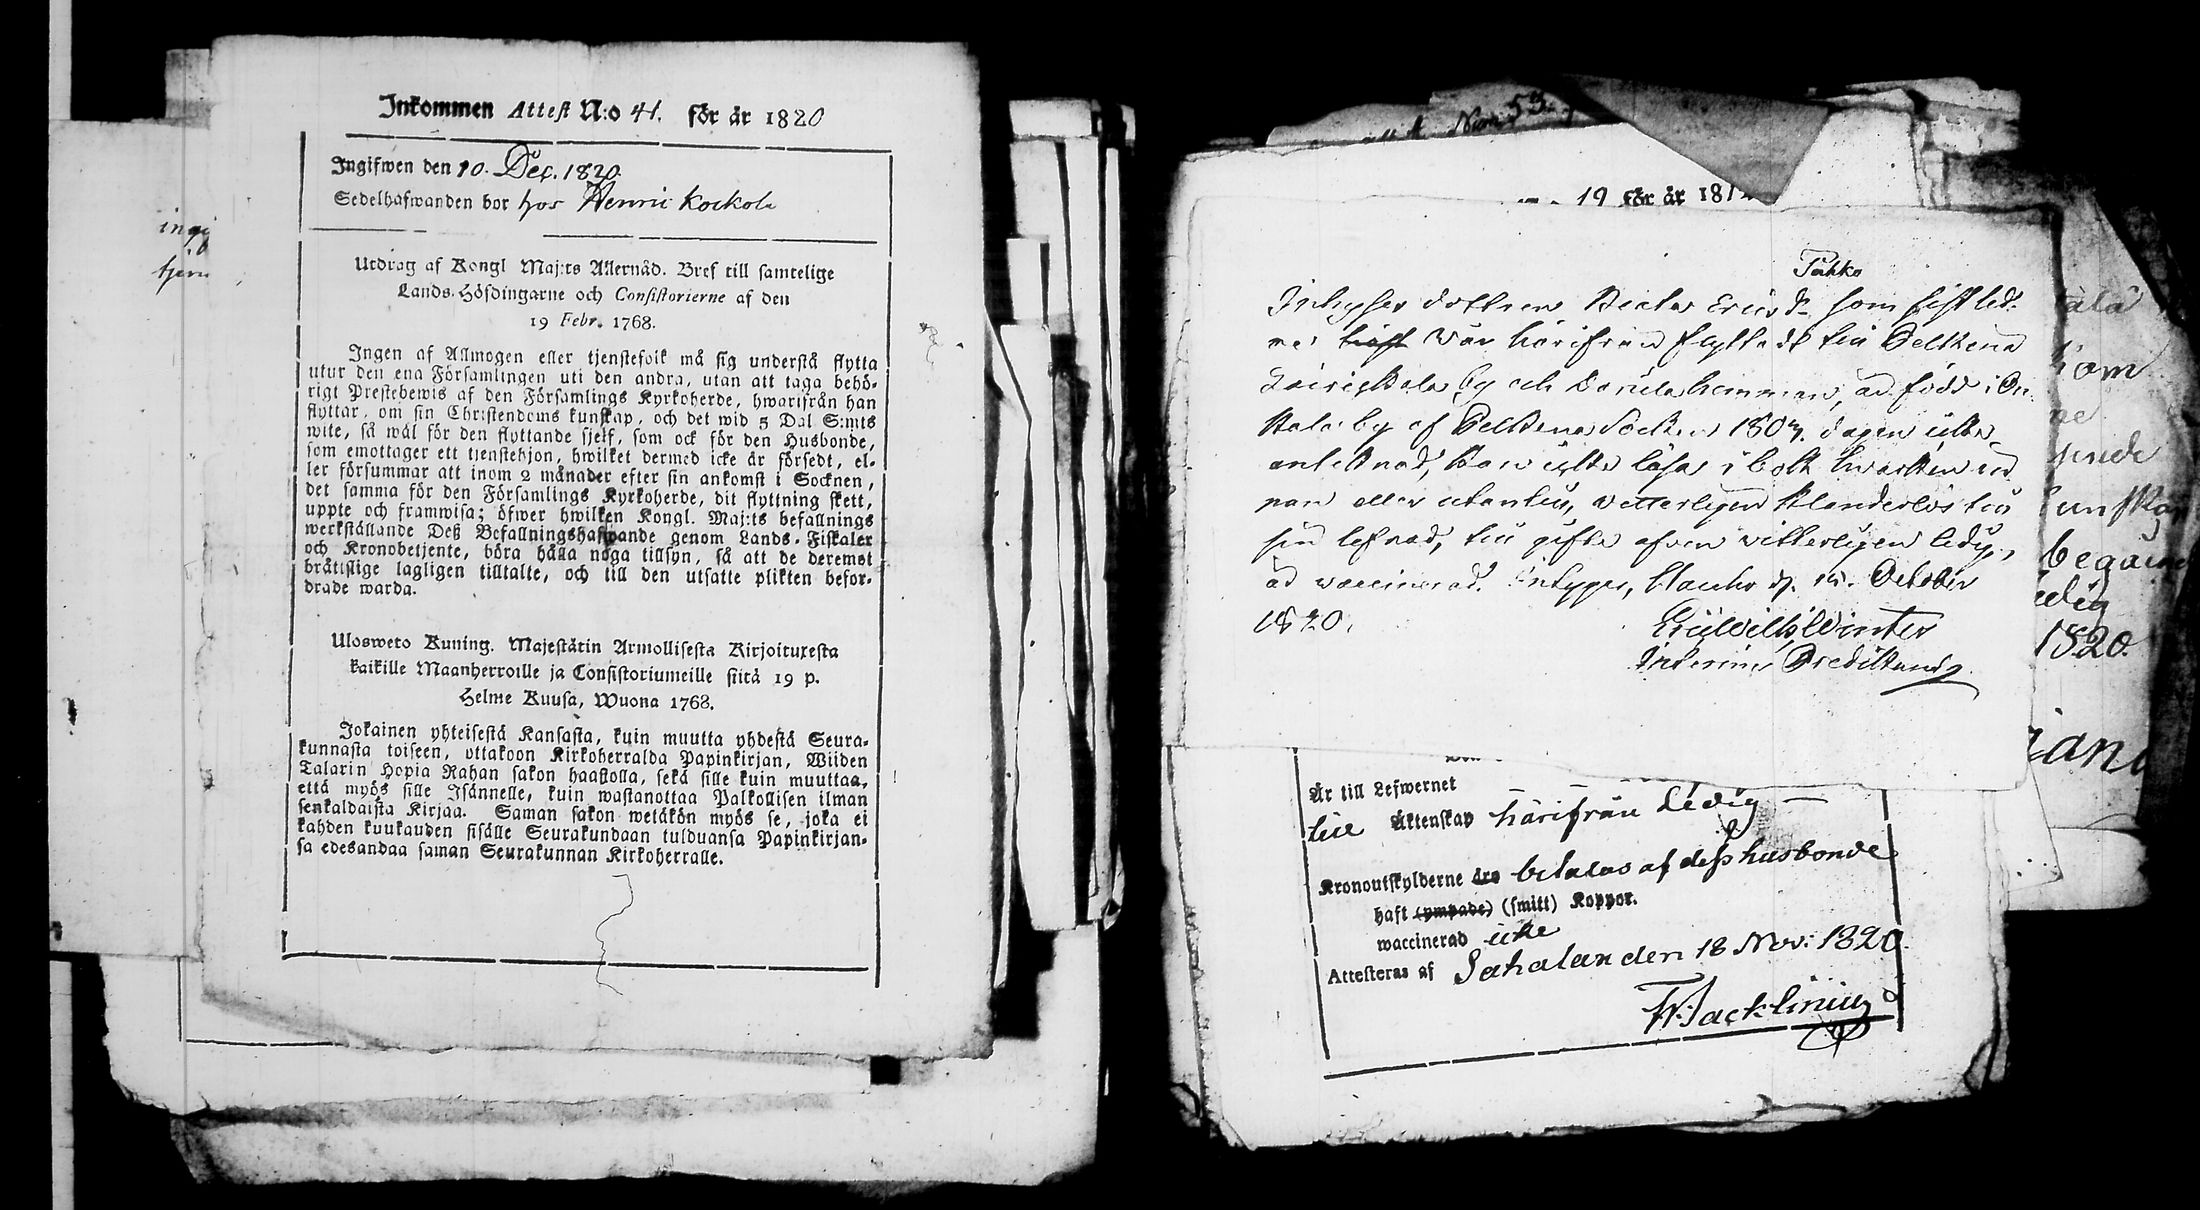 Inkommen Attest N:o 41. För år 1820
Ingifwen den 10. Dec. 1820.
Sedelhafwanden bor hos Henric Kockola
Utdrag af Kongl Maj:ts Allernåd. Bref till samtelige
Lands-Höfdingarne och Consistorierne af den
19 Febr. 1768.
Ingen af Allmogen eller tjenstefolk må sig understå flytta
utur den ena Församlingen uti den andra, utan att taga behö-
rigt Prestebewis af den Församlings Kyrkoherde, hwarifrån han
flyttar, om sin Christendoms kunskap, och det wid 5 Dal S:mts
wite, så wäl för den flyttande sjelf, som ock för den Husbonde,
som emottager ett tjenstehjon, hwilket dermed icke är försedt, el-
ler försummar att inom 2 månader efter sin ankomst i Socknen,
det samma för den Församlings Kyrkoherde, dit flyttning skett,
uppte och framwisa; öfwer hwilken Kongl. Maj:ts befallnings
werkställande Deß Befallningshafwande genom Lands-Fiskaler
och Kronobetjente, böra hålla noga tillsyn, så att de deremot
bråttslige lagligen tilltalte, och till den utsatte plikten befor-
drade warda.
Ulosweto Kuning. Majestätin Armollisesta Kirjoituxesta
kaikille Maanherroille ja Consistoriumeille siitä 19 p.
Helme Kuusa, Wuona 1768.
Jokainen yhteisestä Kansasta, kuin muutta yhdestä Seura-
kunnasta toiseen, ottakoon Kirkoherralda Papinkirjan, Wiiden
Talarin Hopia Rahan sakon haastolla, sekä sille kuin muuttaa,
että myös sille Isännelle, kuin wastanottaa Palkollisen ilman
senkaldaista Kirjaa. Saman sakon wetäkön myös se, joka ei
kahden kuukauden sisälle Seurakundaan tulduansa Papinkirjan-
sa edesandaa saman Seurakunnan Kirkoherralle.
19 för år 181
Pahko
Inhyses dottren Beata Ericsdr som sist led-
ne höst var härifrån flyttad till Pelkene
by och hemman, är född i On-
kala by af Pelkene Socken 180 dagen icke
anteknad, kan icke läsa i bok hvarken in-
nan eller utantill, vetterligen klanderlös till
sin lefnad, till gifte äfven vitterligen ledig,
är vaccinerad. Intygar, Hauho d. 15. October
1820.
Winter
Interims Predikant
Är till Lefwernet
till Äktenskap härifrån Ledig —
Kronoutskylderne äro betalas af dess husbonde
haft (ympade) (smitt) Koppor.
waccinerad icke
Attesteras af Sahalax den 18 Nov: 1820.
1820.